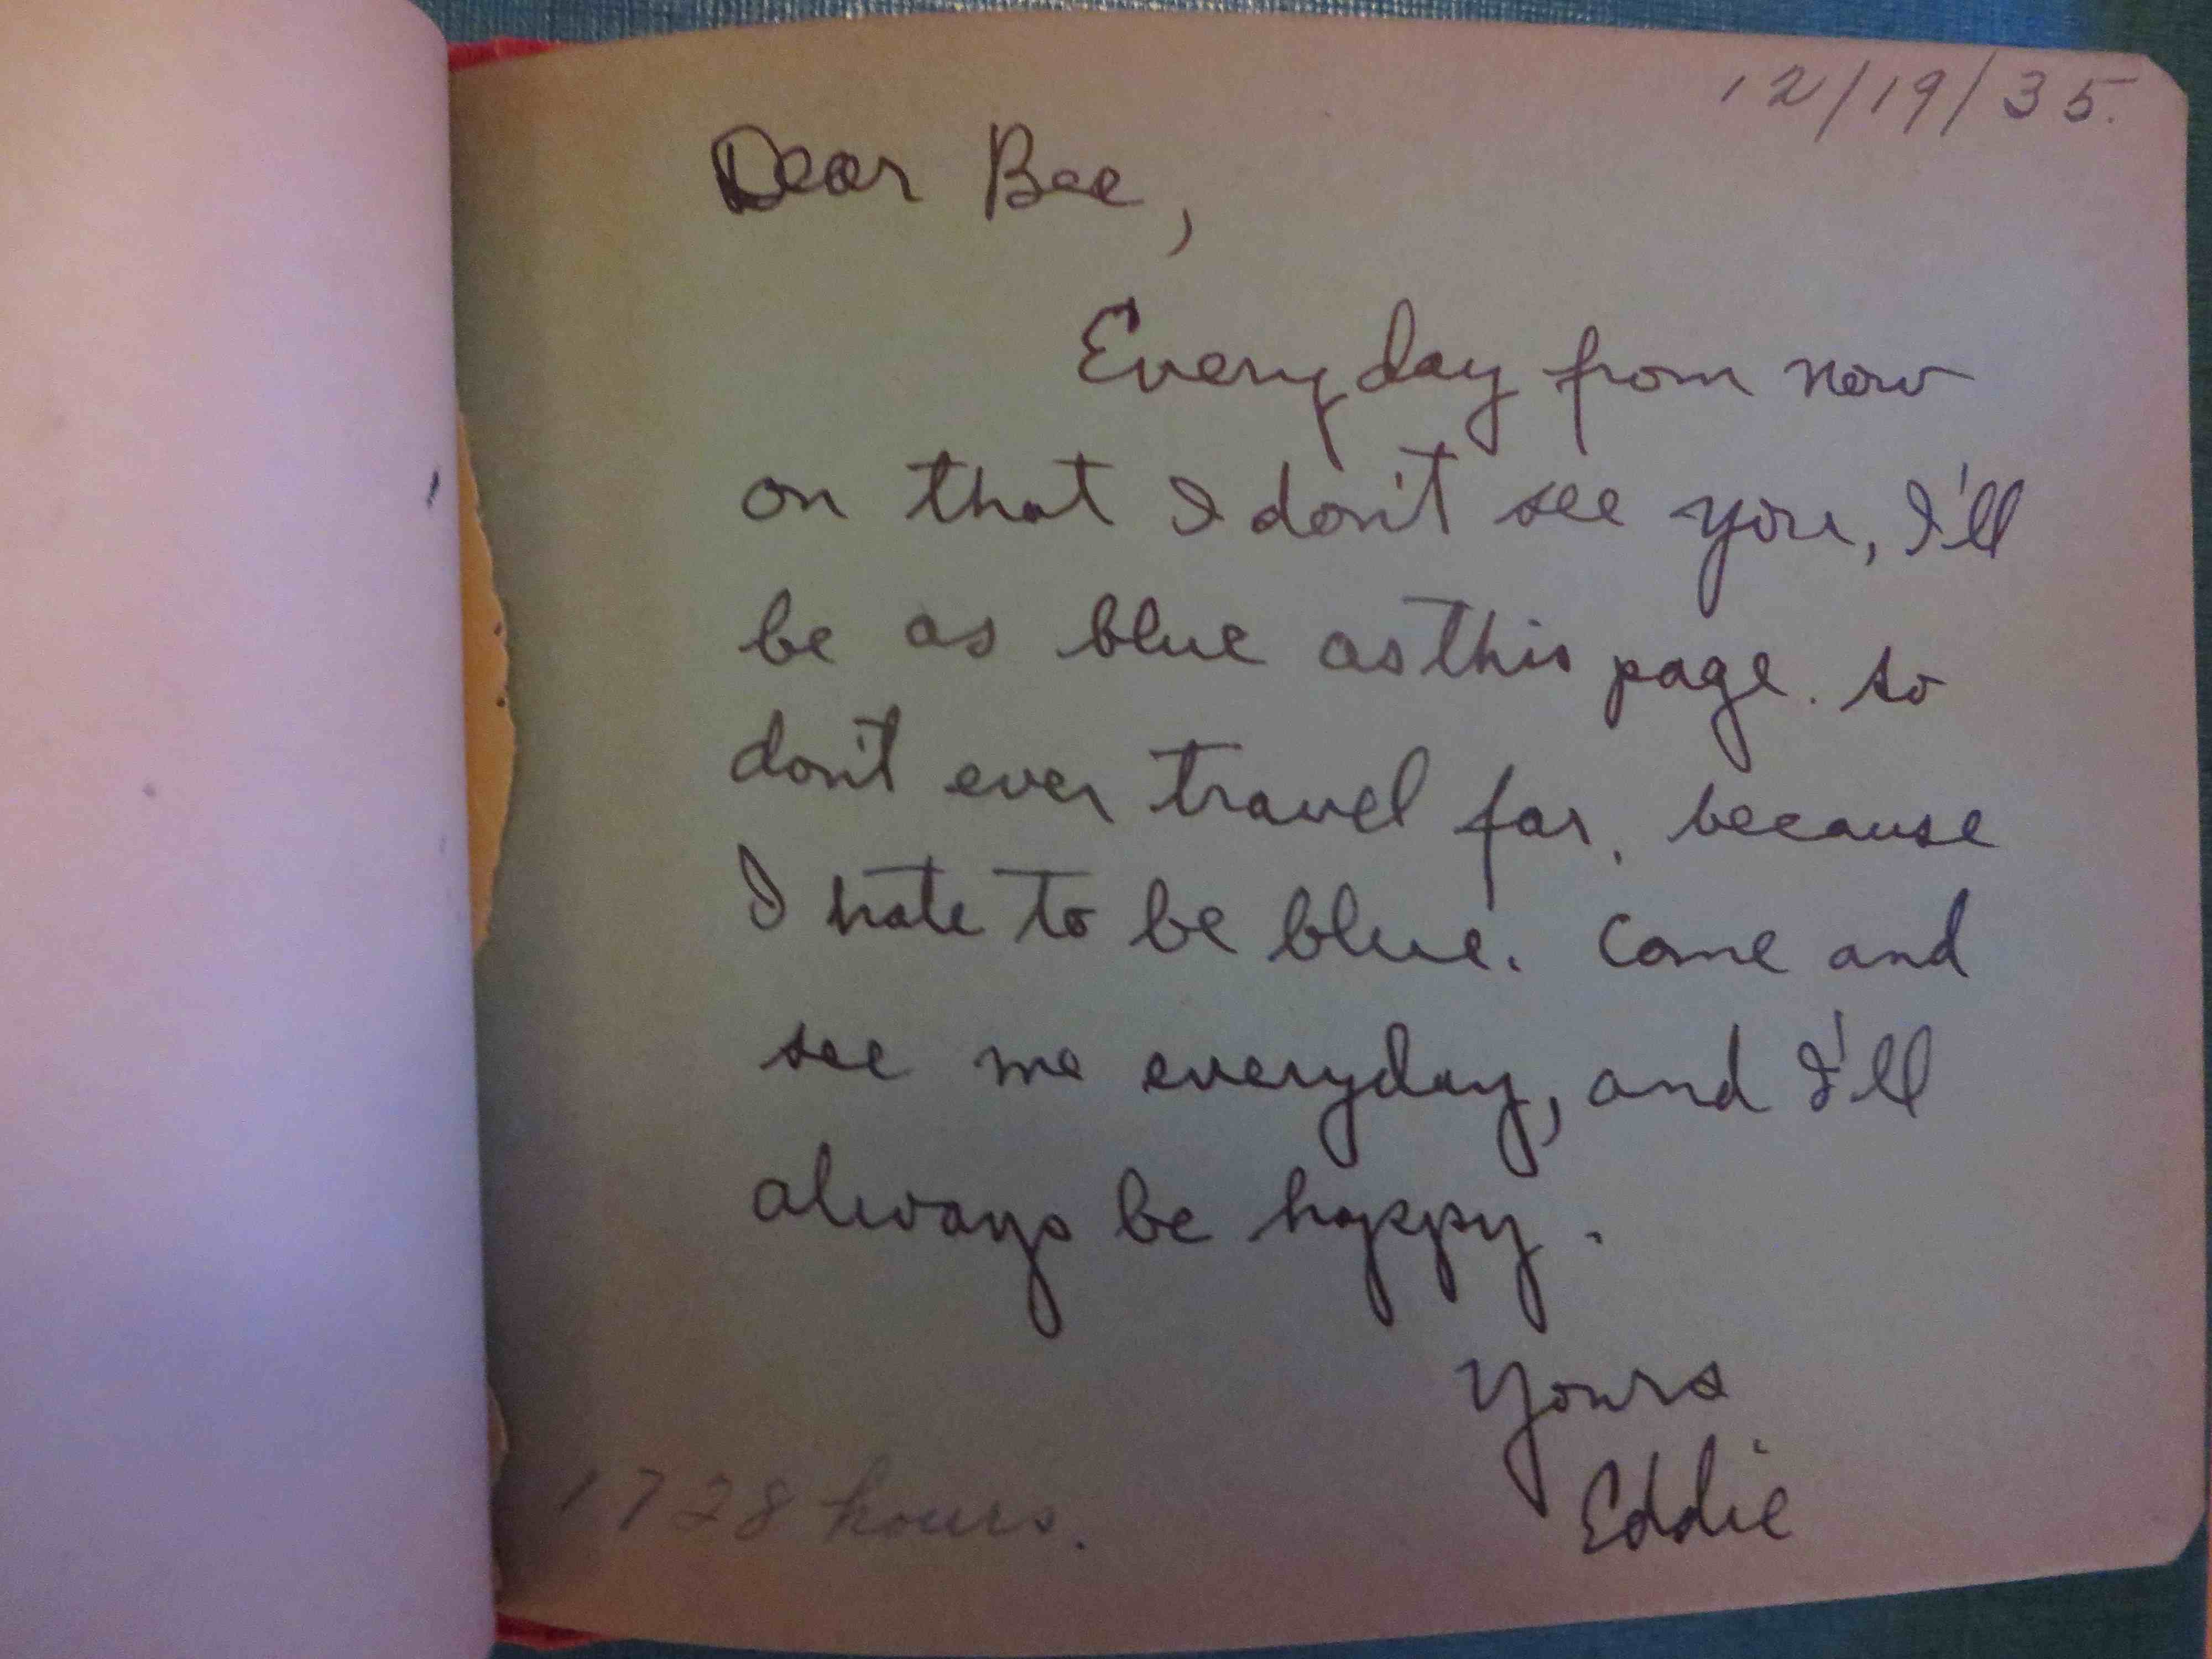 12/19/35.
Dear Bee,
Everyday from now
on that I don't see you, I'll
be as blue as this page. so
don't ever travel far, because
I hate to be blue. Come and
see me everyday, and I'll
always be happy.
Yours
Eddie
1728 hours.